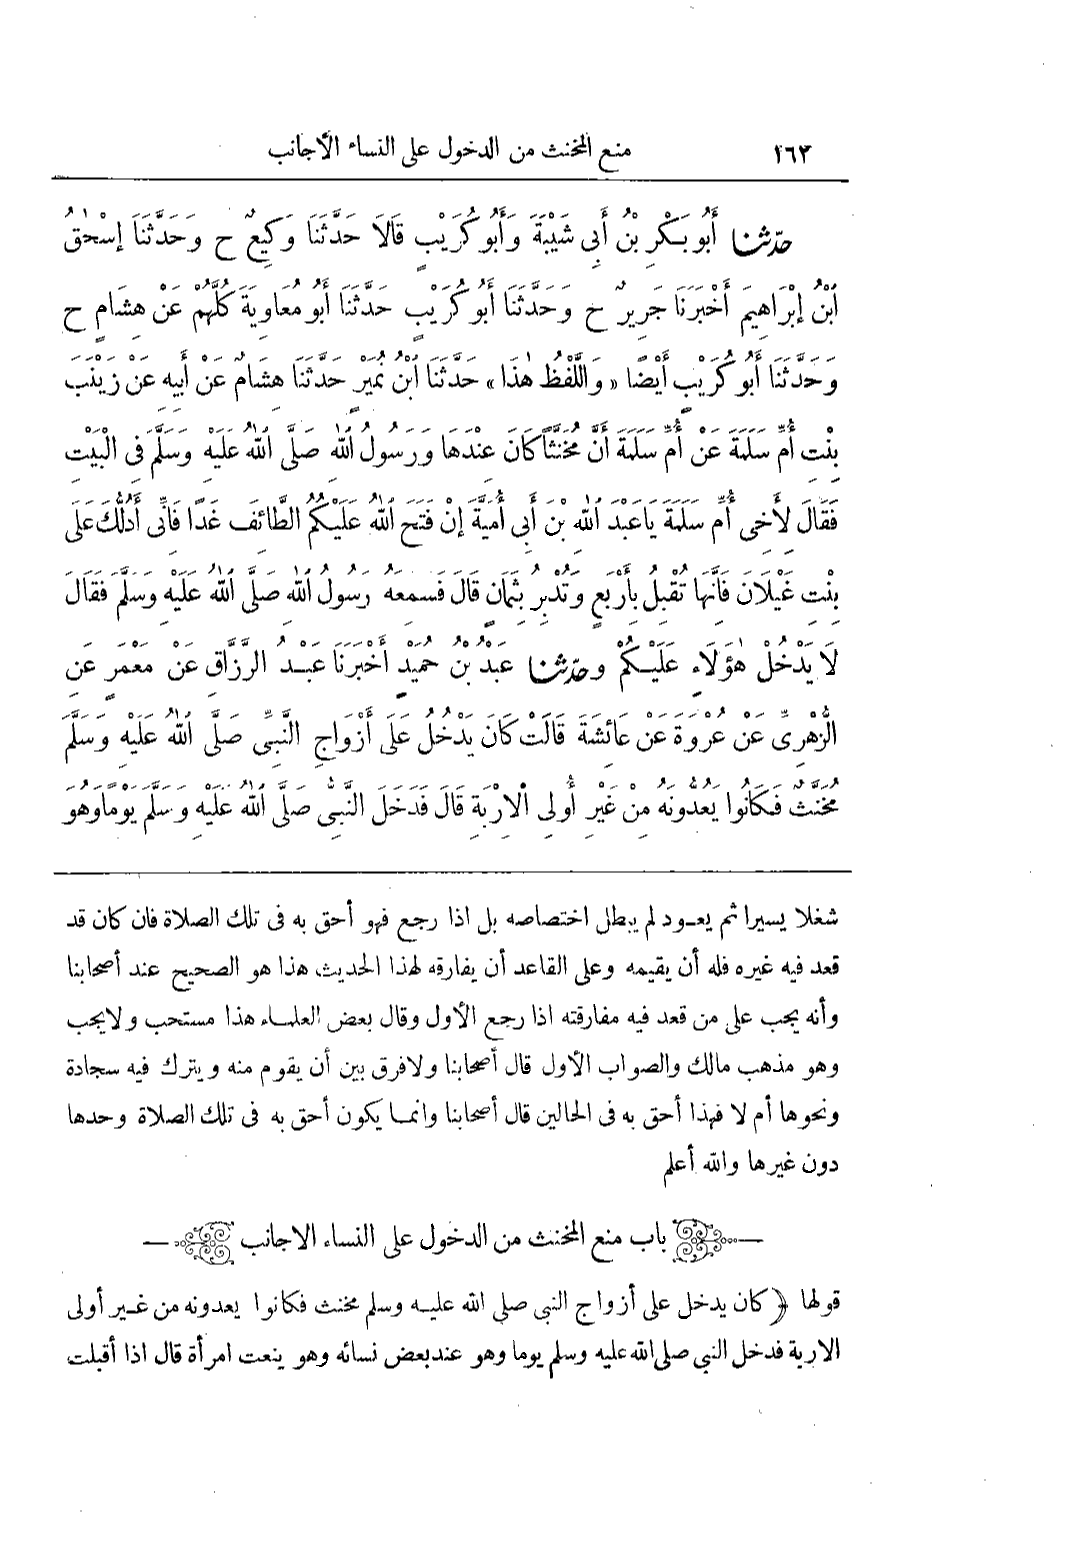 ١٦٢ منع المخنث من الدخول على النساء الأجانب
حدّثنا أَبُو بَكْرِ بْنُ أَبِي شَيْبَةَ وَأَبُو كُرَيْبٍ قَالَا حَدَّثَنَا وَكِيعٌ ح وَحَدَّثَنَا إِسْحٰقُ
ابْنُ إِبْرَاهِيمَ أَخْبَرَنَا جَرِيرٌ ح وَحَدَّثَنَا أَبُو كُرَيْبٍ حَدَّثَنَا أَبُو مُعَاوِيَةَ كُلُّهُمْ عَنْ هِشَامٍ ح
وَحَدَّثَنَا أَبُو كُرَيْبٍ أَيْضًا «وَاللَّفْظُ هٰذَا» حَدَّثَنَا ابْنُ نُمَيْرٍ حَدَّثَنَا هِشَامٌ عَنْ أَبِيهِ عَنْ زَيْنَبَ
بِنْتِ أُمِّ سَلَمَةَ عَنْ أُمِّ سَلَمَةَ أَنَّ مُخَنَّثًا كَانَ عِنْدَهَا وَرَسُولُ اللهِ صَلَّى اللهُ عَلَيْهِ وَسَلَّمَ فِي الْبَيْتِ
فَقَالَ لِأَخِي أُمِّ سَلَمَةَ يَا عَبْدَ اللهِ بْنَ أَبِي أُمَيَّةَ إِنْ فَتَحَ اللهُ عَلَيْكُمُ الطَّائِفَ غَدًا فَإِنِّي أَدُلُّكَ عَلَى
بِنْتِ غَيْلَانَ فَإِنَّهَا تُقْبِلُ بِأَرْبَعٍ وَتُدْبِرُ بِثَمَانٍ قَالَ فَسَمِعَهُ رَسُولُ اللهِ صَلَّى اللهُ عَلَيْهِ وَسَلَّمَ فَقَالَ
لَا يَدْخُلْ هٰؤُلَاءِ عَلَيْكُمْ وحدّثنا عَبْدُ بْنُ حُمَيْدٍ أَخْبَرَنَا عَبْدُ الرَّزَّاقِ عَنْ مَعْمَرٍ عَنِ
الزُّهْرِيِّ عَنْ عُرْوَةَ عَنْ عَائِشَةَ قَالَتْ كَانَ يَدْخُلُ عَلَى أَزْوَاجِ النَّبِيِّ صَلَّى اللهُ عَلَيْهِ وَسَلَّمَ
مُخَنَّثٌ فَكَانُوا يَعُدُّونَهُ مِنْ غَيْرِ أُولِي الْإِرْبَةِ قَالَ فَدَخَلَ النَّبِيُّ صَلَّى اللهُ عَلَيْهِ وَسَلَّمَ يَوْمًا وَهُوَ
شغلا يسيرا ثم يعود لم يبطل اختصاصه بل اذا رجع فهو أحق به فى تلك الصلاة فان كان قد
قعد فيه غيره فله أن يقيمه وعلى القاعد أن يفارقه لهذا الحديث هذا هو الصحيح عند أصحابنا
وأنه يجب على من قعد فيه مفارقته اذا رجع الأول وقال بعض العلماء هذا مستحب ولا يجب
وهو مذهب مالك والصواب الأول قال أصحابنا ولا فرق بين أن يقوم منه ويترك فيه سجادة
ونحوها أم لا فهذا أحق به فى الحالين قال أصحابنا وانما يكون أحق به فى تلك الصلاة وحدها
دون غيرها والله أعلم
باب منع المخنث من الدخول على النساء الاجانب
قولها ﴿ كان يدخل على أزواج النبى صلى الله عليه وسلم مخنث فكانوا يعدونه من غير أولى
الاربة فدخل النبي صلى الله عليه وسلم يوما وهو عند بعض نسائه وهو ينعت امرأة قال اذا أقبلت